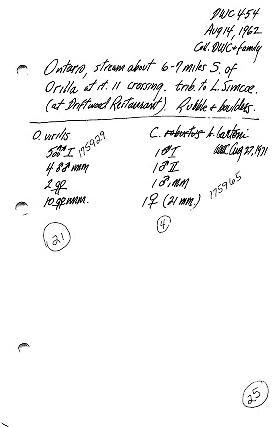 DWC 454
Aug 14, 1962
Coll. DWC + family
Ontario, stream about 6-7 miles S. of
Orilla at rt. 11 crossing. trib. to L. Simcoe.
(at Driftwood Restaurant). Rubble + boulders.
O. virilis
5♂♂ I 175929
4 ♂♂ imm
2 ♀♀
10 ♀♀ imm.
21
C. robustus b. bartoni
1♂ I Aug 27, 1971
1♂ II
1♂ imm
1♀ (21 mm.) 175965
4
25